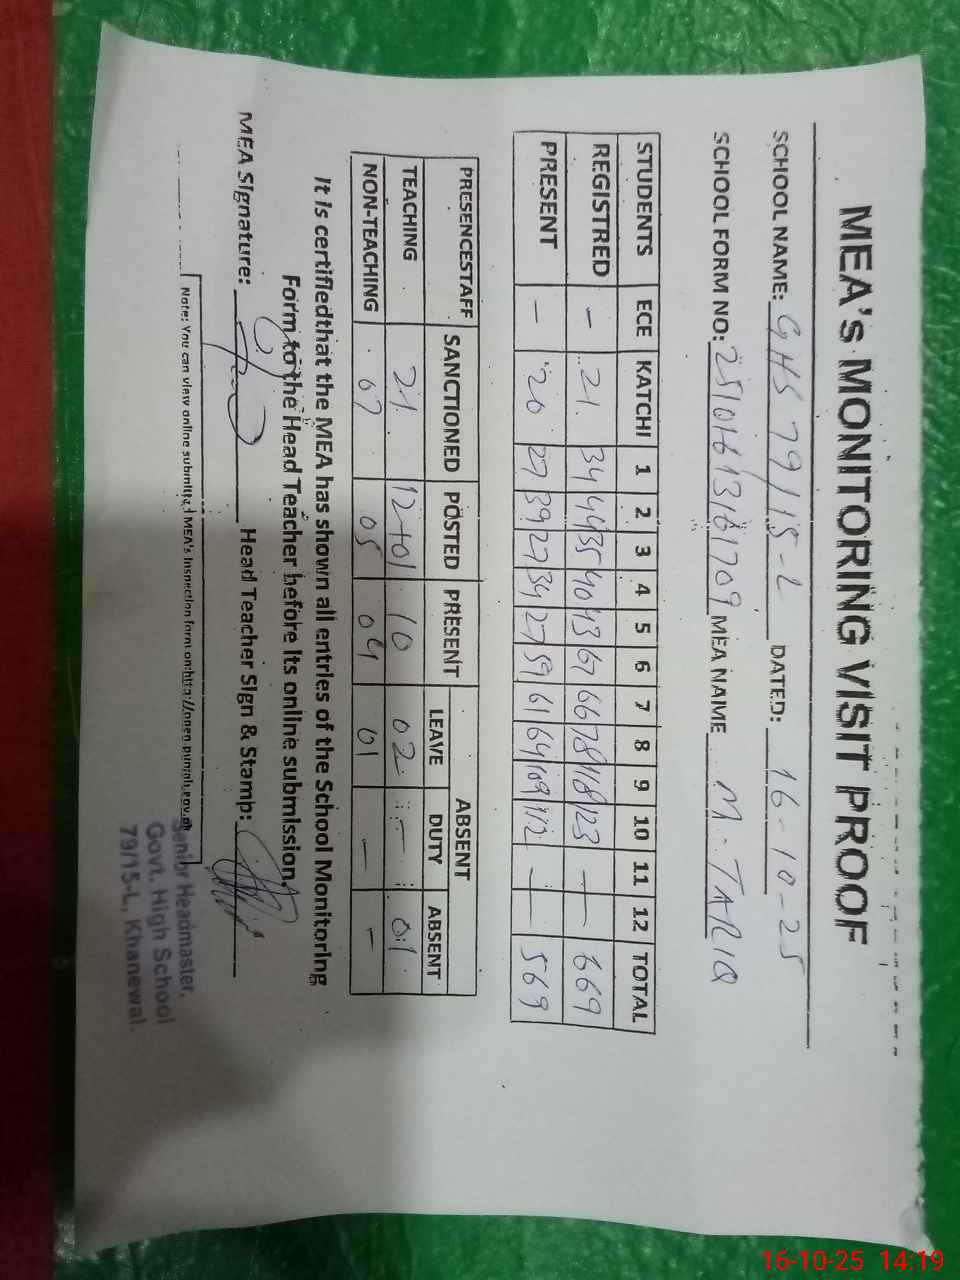 MEA's MONITORING VISIT PROOF
SCHOOL NAME: GHS 79/15-L DATED: 16-10-25
SCHOOL FORM NO: 25101613161709 MEA NAME M. TARIQ
STUDENTS ECE KATCHI 1 2 3 4 5 6 7 8 9 10 11 12 TOTAL
REGISTRED - 21 34 44 35 40 43 67 66 78 118 123 - - 669
PRESENT - 20 27 39 27 34 27 59 61 64 - - 569
PRESENCESTAFF SANCTIONED POSTED PRESENT ABSENT
LEAVE DUTY ABSENT
TEACHING 21 12+01 10 02 - 01
NON-TEACHING 07 05 04 01 - -
It is certifiedthat the MEA has shown all entries of the School Monitoring
Form to the Head Teacher before its online submission.
MEA Signature: Head Teacher Sign & Stamp:
Note: You can view online submitted MEA's Inspection form on
Senior Headmaster,
Govt. High School
79/15-L, Khanewal.
16-10-25 14:19